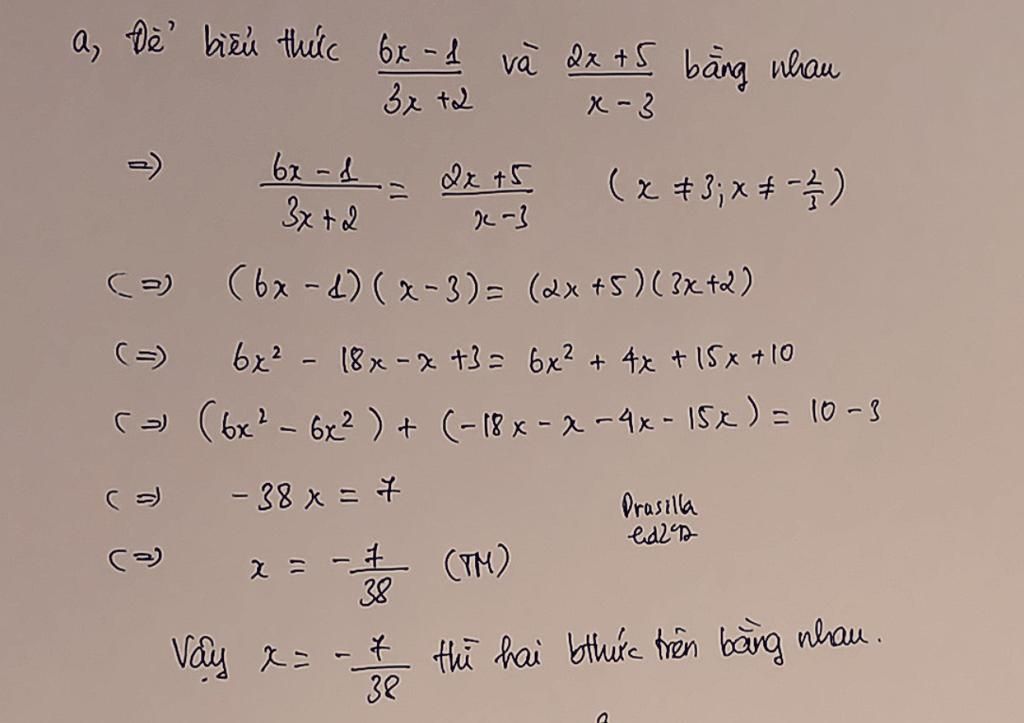 a, Để biểu thức (6x - 1)/(3x + 2) và (2x + 5)/(x - 3) bằng nhau
=> (6x - 1)/(3x + 2) = (2x + 5)/(x - 3) (x ≠ 3; x ≠ -2/3)
(=) (6x - 1)(x - 3) = (2x + 5)(3x + 2)
(=) 6x² - 18x - x + 3 = 6x² + 4x + 15x + 10
(=) (6x² - 6x²) + (-18x - x - 4x - 15x) = 10 - 3
(=) -38x = 7
Drusilla
(=) x = -7/38 (TM)
Vậy x = -7/38 thì hai bthức trên bằng nhau.